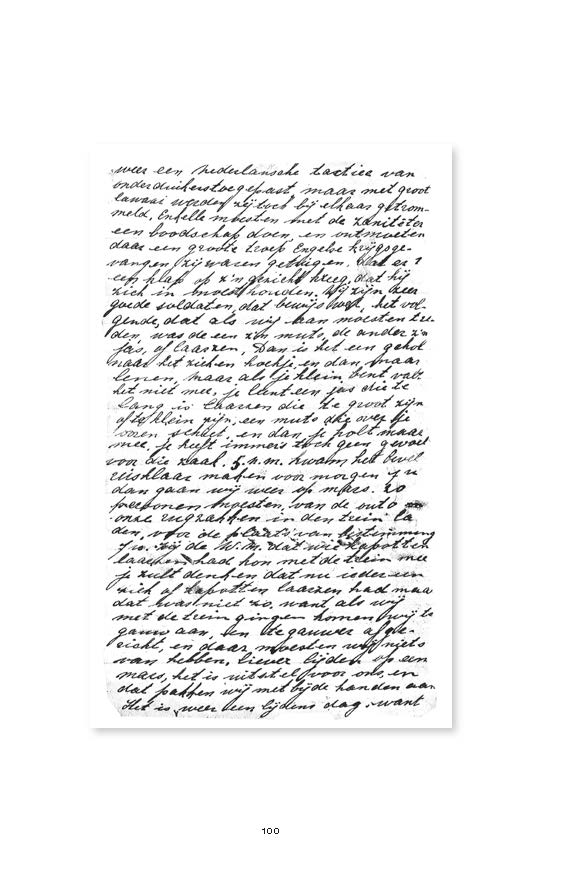 weer een Nederlansche tactiee van
onderduikerstoegepast maar met groot
lawaai werden zij toch bij elkaar getrom-
meld, Enkelle moesten met de zaniteter
een boodschap doen, en ontmoeten
daar een groote troep Engelse krijgsge-
vangen, zij waren getuigen, dat er 1
een klap op z'n gezicht kreeg, dat hij
zich in moest houden. Wij zijn zeer
goede soldaten, dat bewijst het vol-
gende, dat als wij aan moesten tre-
den, was de een z'n muts, de ander z'n
jas, of laarzen, Dan is het een gehol
naar het zieken hoekje, en dan maar
lenen, maar als je klein bent valt
het niet mee, je leent een jas die te
lang is laarzen die te groot zijn
of te klein zijn, een muts die over je
ooren schiet, en dan je holt maar
mee, je heeft immers toch geen gevoel
voor die zaak. 5 n.m. kwam het bevel
rusklaar maken voor morgen 7 u
dan gaan wij weer op mars. 20
personen moesten, van de auto
onze rugzakken in den trein la
den, voor de plaats van bestemming
zij de W.M. dat wie kapotten
laarzen had kon met de trein mee
je zult denken dat nu ieder een
ziek of kapotten laarzen had maar
dat was niet zo, want als wij
met de trein gingen komen wij te
gauw aan, en te gauwer afge-
richt, en daar moesten wij niets
van hebben, liever lijden op een
mars, het is uitstel voor ons, en
dat pakken wij met bijde handen aan
Het is weer een lijdens dag, want
100